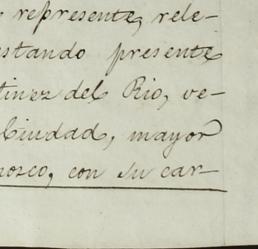 represente, rele-
stando presente
tinez del Rio, ve-
Ciudad, mayor
nozco, con su car-